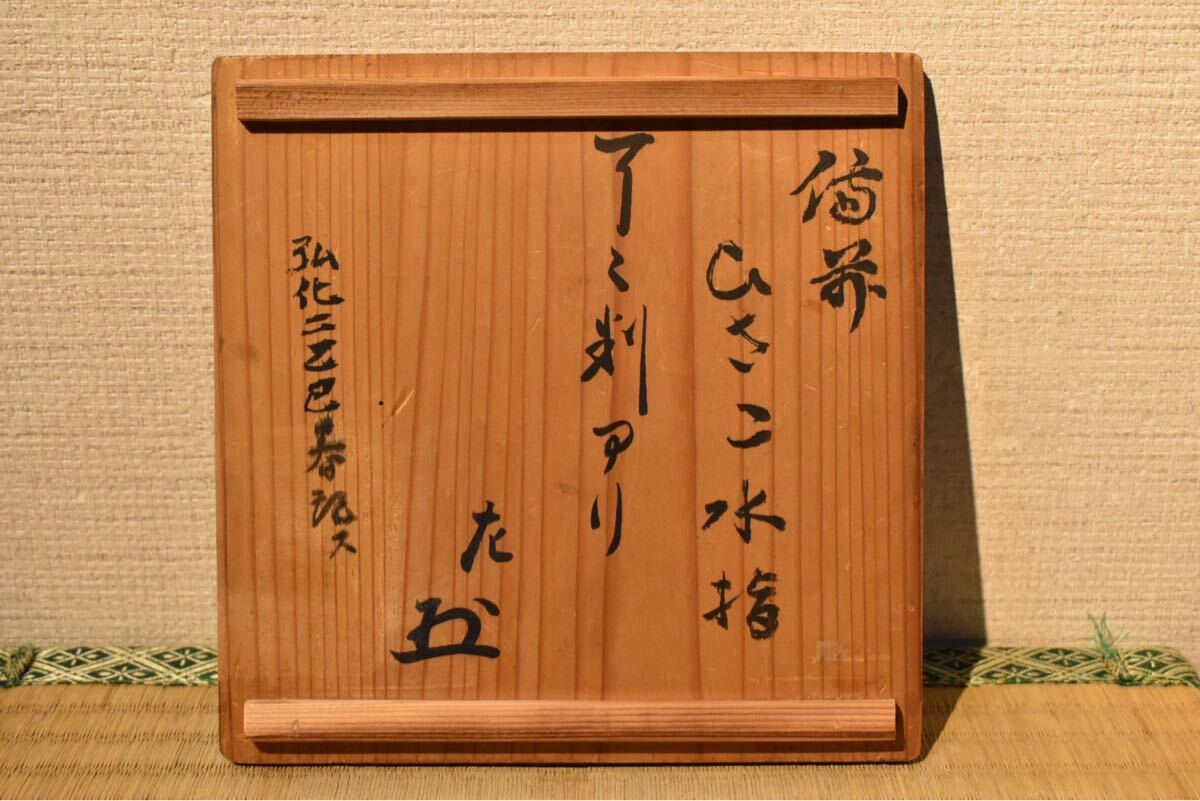 備前
ひさこ水指
丁ミ判アリ
左(花押)
弘化二乙巳春記ス